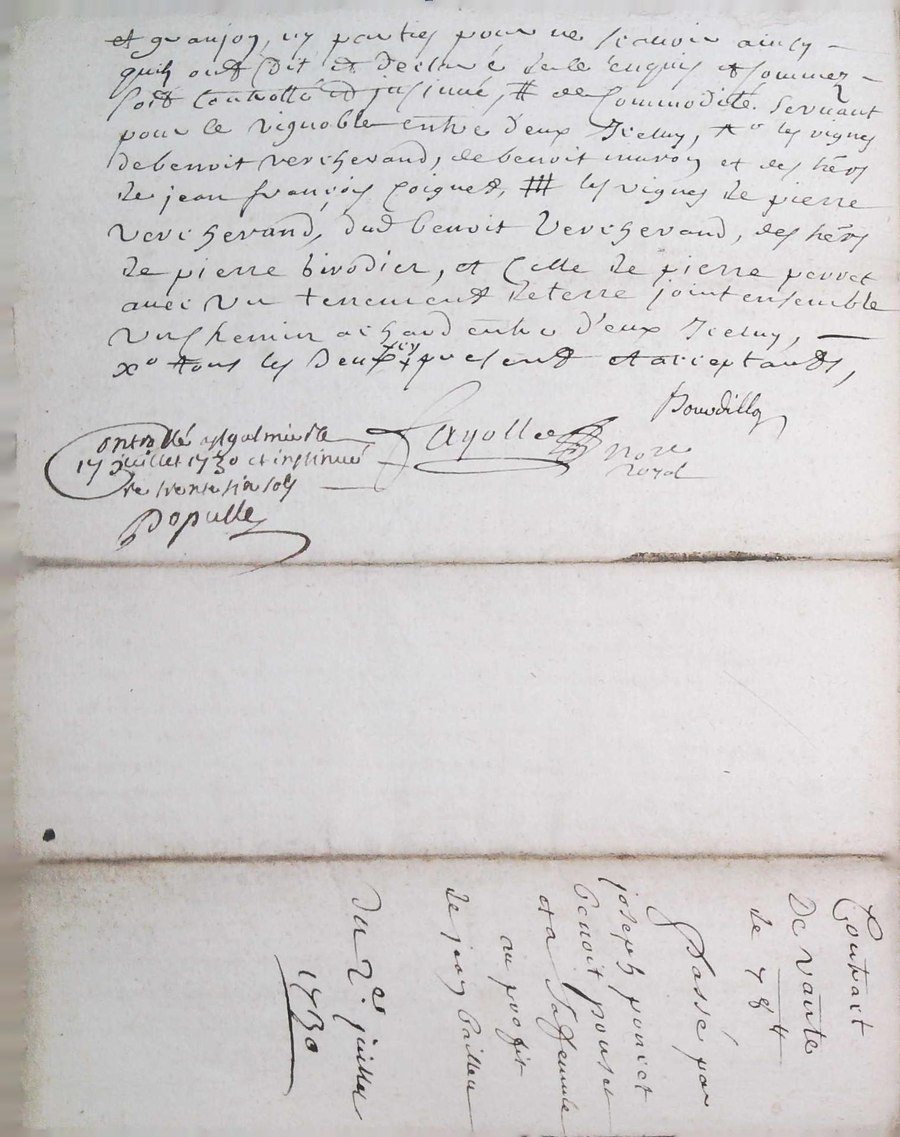 et granjon, les parties pour ne scavoir ainsy
quils ont dit et declaré de ce enquis et sommez
soit controllé et insinué, # de commodité servant
pour le vignoble entre d'eux Iceluy, les vignes
de benoit verchevand, de benoit muron et des hers
de jean françois Coignet, # les vignes de pierre
verchevand, dud benoit Verchevand, des hers
de pierre birodier, et Celle de pierre perret
avec un tennement de terre joint ensemble
un chemin a chard entre d'eux Iceluy,
xo tous les Deux icy presents et acceptants,
Bourdillon
Fayolle
no.re
royal
Controllé a st galmier le
17 juillet 1730 et insinué
re trente six sols
Populle
Contrait
De vante
de 78 tt
Passé par
joseph poncet
benoit pouset
et a sa femme
au profit
de jean Caillet
Du 2e juillet
1730